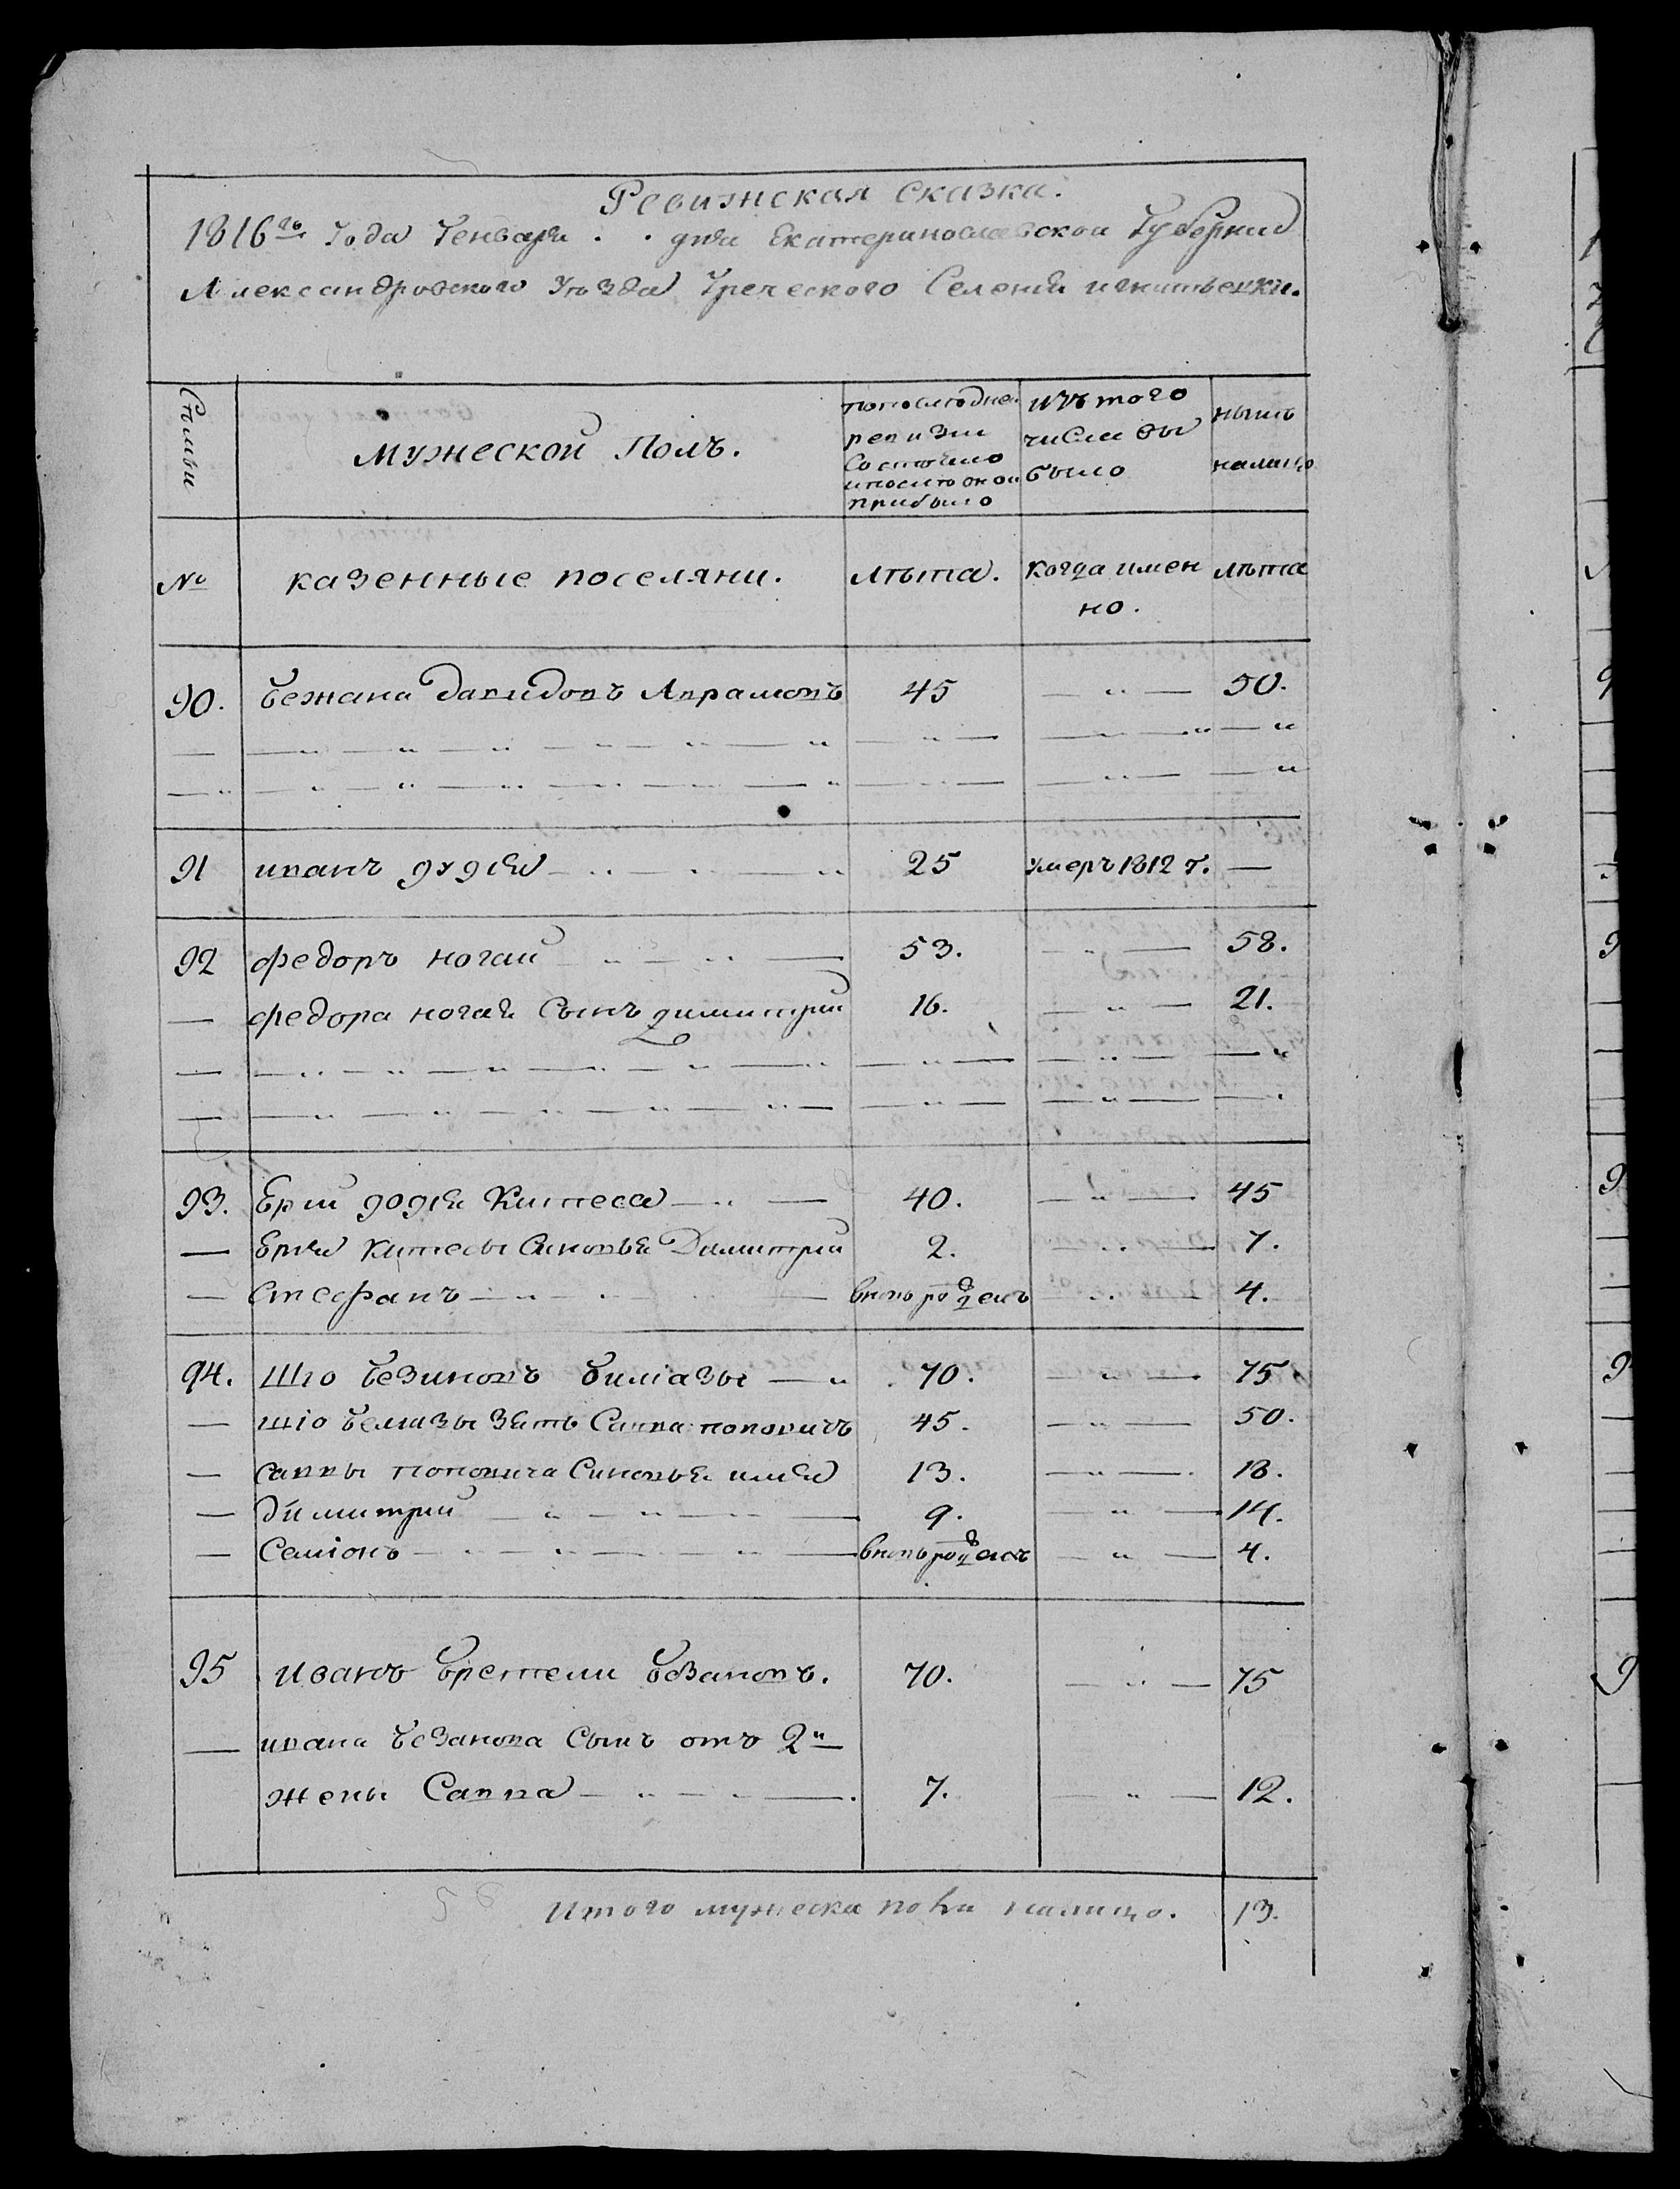 Ревижская сказка.
1816го Года Генваря . . дня Екатеринославской Губернии
Александровского Уѣзда Греческого Селения игнатьевки.
Сѣмьи
мужеской Полъ.
попослѣдней ревизии Состояло ипослѣ оной прибыло
изъ того числа вы было
нынѣ налицо
№
казенные поселяни.
лѣта.
когда имен но.
лѣта
90. бежана давидовъ Аврамовъ 45 — „ — 50.
91 иванъ дудія 25 умеръ 1812 г. —
92 федоръ ногай 53. — „ — 58.
— федора ногая Сынъ димитрий 16. — „ — 21.
93. Ерій додія Китеса 40. — „ — 45
— Ерія китесы Синовья Димитрий 2. — „ — 7.
— Стефанъ вновь рожденъ — „ — 4.
94. Шіо безиновъ биліазы 70. — „ — 75.
— шіо белиазы зять Савва поповичъ 45. — „ — 50.
— саввы поповича Синовья илія 13. — „ — 18.
— Димитрий 9. — „ — 14.
— Семіонъ вновь рожденъ — „ — 4.
95 Иванъ бретели безановъ. 70. — „ — 75
— ивана безанова Сынъ отъ 2й
жены Савва 7. — „ — 12.
Итого мужеска пола налицо. 13.